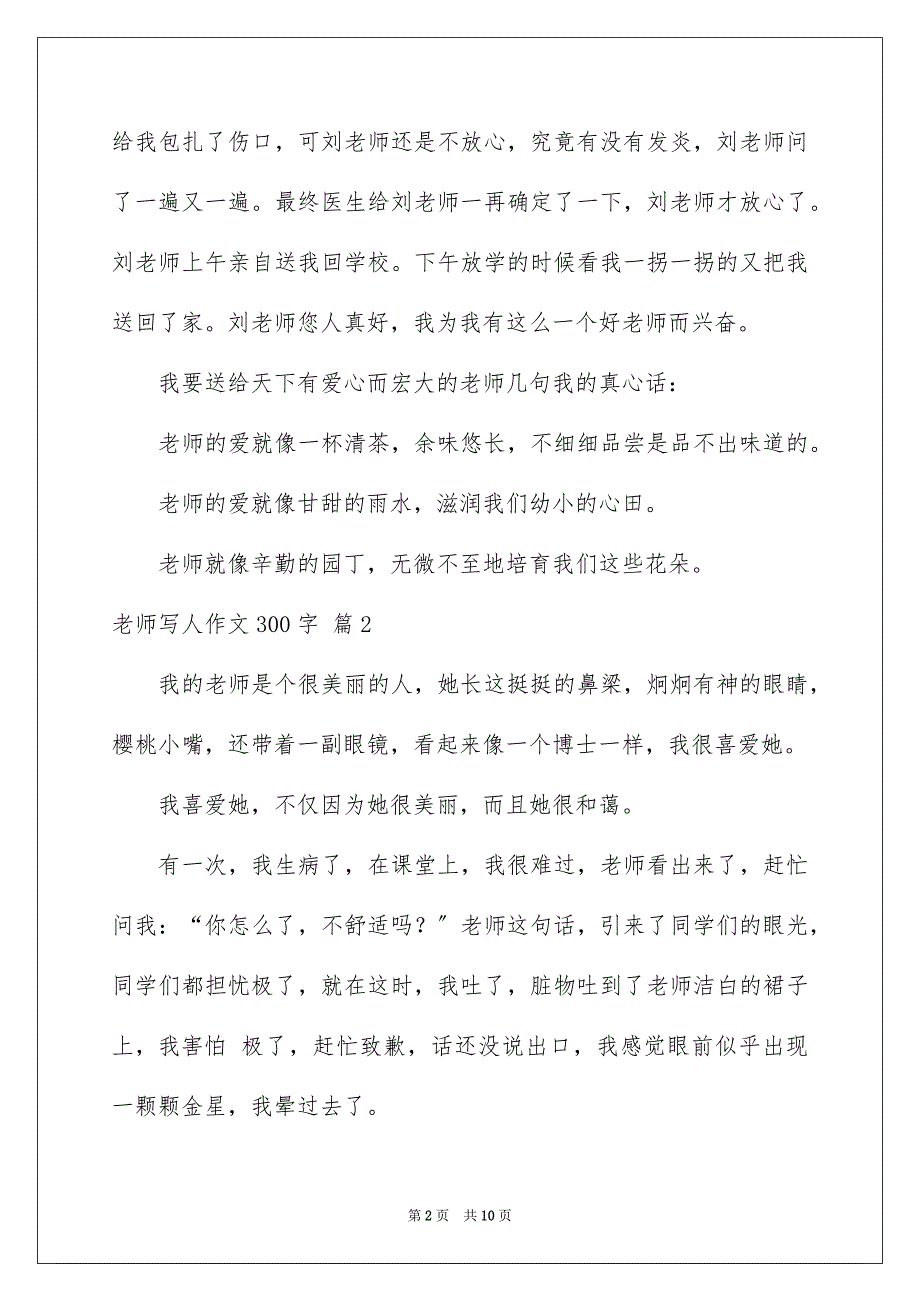 给我包扎了伤口，可刘老师还是不放心，究竟有没有发炎，刘老师问
了一遍又一遍。最终医生给刘老师一再确定了一下，刘老师才放心了。
刘老师上午亲自送我回学校。下午放学的时候看我一拐一拐的又把我
送回了家。刘老师您人真好，我为我有这么一个好老师而兴奋。
我要送给天下有爱心而宏大的老师几句我的真心话：
老师的爱就像一杯清茶，余味悠长，不细细品尝是品不出味道的。
老师的爱就像甘甜的雨水，滋润我们幼小的心田。
老师就像辛勤的园丁，无微不至地培育我们这些花朵。
老师写人作文300字 篇2
我的老师是个很美丽的人，她长这挺挺的鼻梁，炯炯有神的眼睛，
樱桃小嘴，还带着一副眼镜，看起来像一个博士一样，我很喜爱她。
我喜爱她，不仅因为她很美丽，而且她很和蔼。
有一次，我生病了，在课堂上，我很难过，老师看出来了，赶忙
问我：“你怎么了，不舒适吗？〞老师这句话，引来了同学们的眼光，
同学们都担忧极了，就在这时，我吐了，脏物吐到了老师洁白的裙子
上，我害怕 极了，赶忙致歉，话还没说出口，我感觉眼前似乎出现
一颗颗金星，我晕过去了。
第 2 页 共 10 页